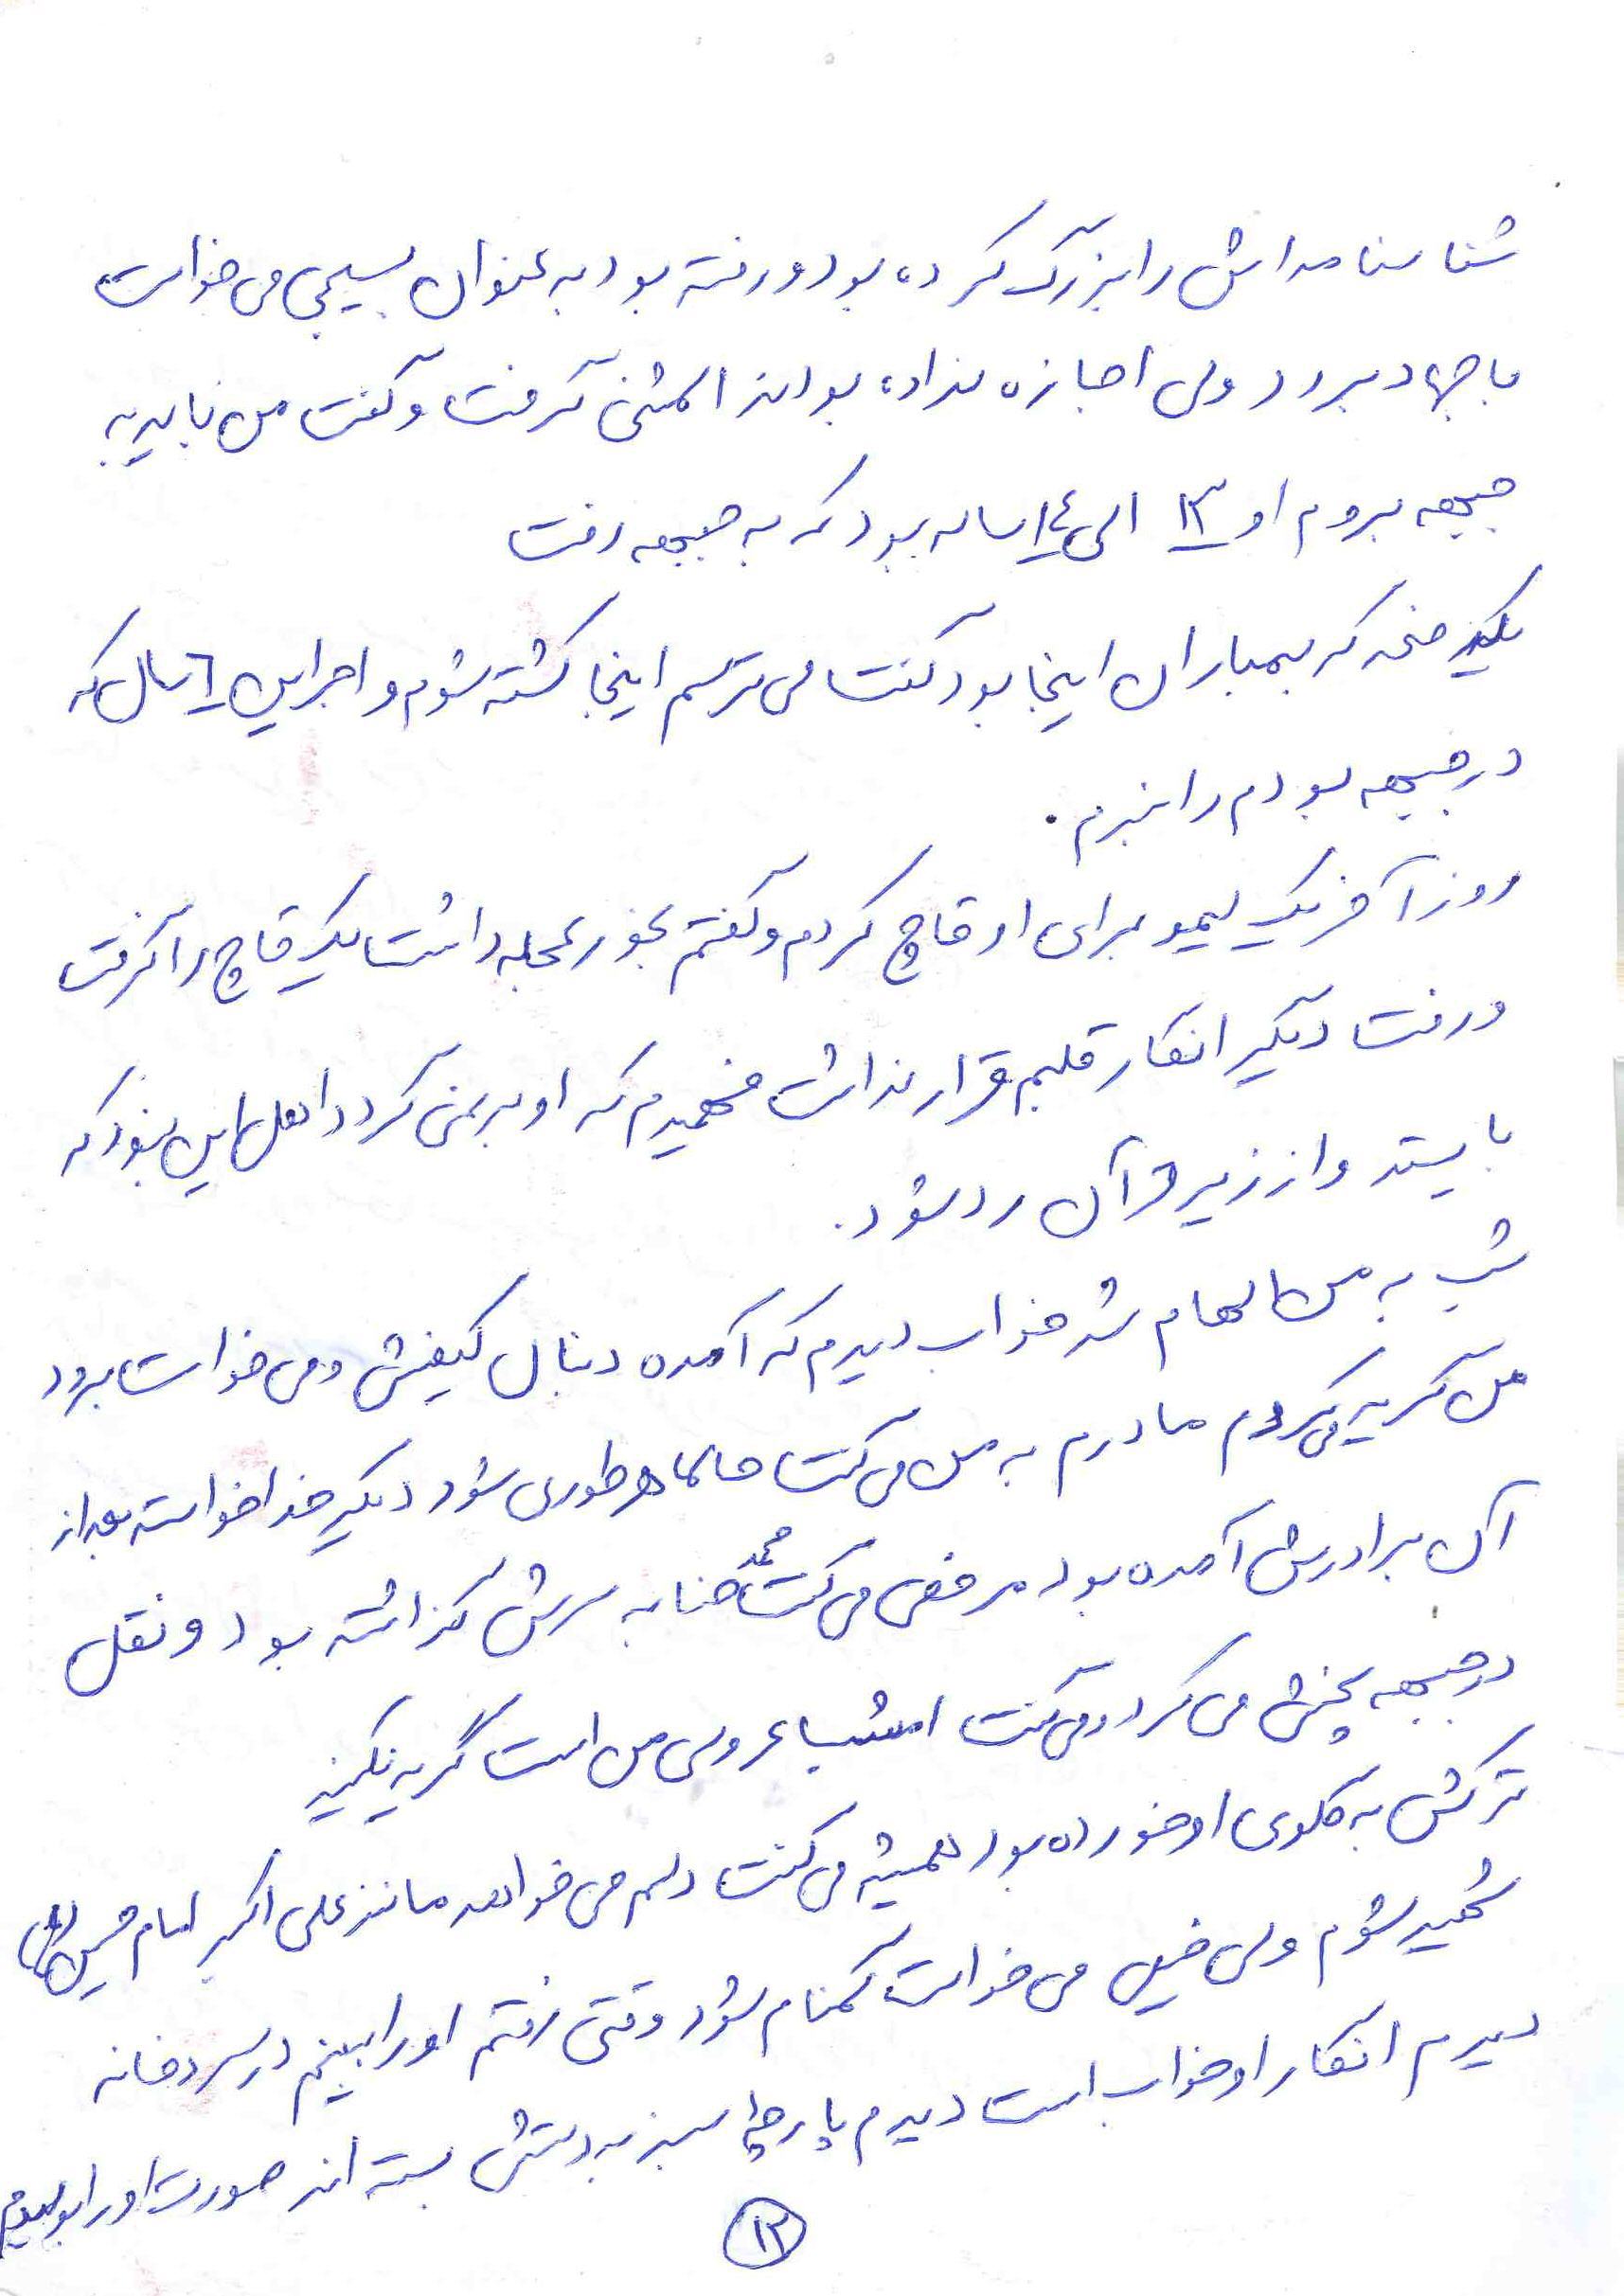 شناسنامه اش را بزرگ کرده بود و رفته بود به عنوان بسیجی می خواست
با جهاد برود ولی اجازه نداده بودند المثنی گرفت و گفت من باید به
جبهه بروم او ۱۳ الی ۱۴ ساله بود که به جبهه رفت
یکدفعه که بمباران اینجا بود گفت می ترسم اینجا کشته شوم و اجر این ۶ سال که
در جبهه بودم را نبرم.
روز آخر یک لیمو برای او قاچ کردم و گفتم بخور عجله داشت یک قاچ را گرفت
و رفت دیگر انگار قلبم قرار نداشت فهمیدم که او بر نمی گردد اهل این نبود که
بایستد و از زیر قرآن رد شود.
شب به من الهام شد خواب دیدم که آمده دنبال کیفش و می خواست برود
من گریه می کردم مادرم به من می گفت حالا هر طوری شود دیگر خدا خواسته بعد از
آن برادرش آمده بود مرخصی می گفت محمد حنا به سرش گذاشته بود و نقل
در جبهه پخش می کرد و می گفت امشب عروسی من است گریه نکنید
ترکش به گلوی او خورده بود همیشه می گفت دلم می خواهد مانند علی اکبر امام حسین (ع)
شهید شوم ولی خیلی می خواست گمنام شود وقتی رفتم او را ببینم در سردخانه
دیدم انگار او خواب است دیدم پارچه سبز به دستش بسته اند صورت او را بوسیدم
۱۳